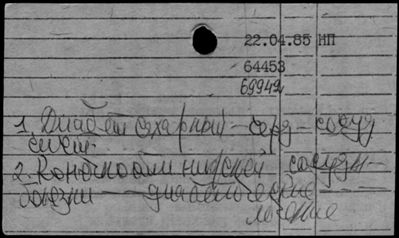 22.04.85 МП
64453
69949
1. Диабет сахарный - серд - сосуд
сист.
2. Конечностей нижней сосуды -
болезни - диабетические -
лечение